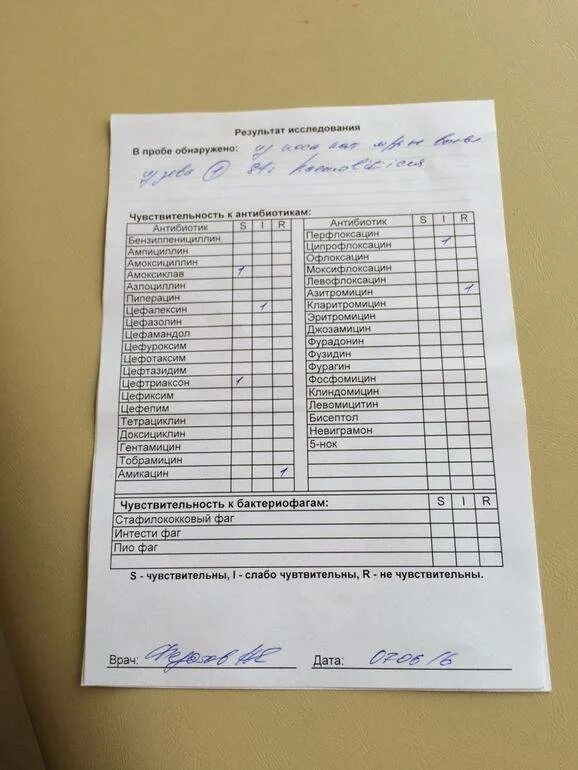 Результат исследования
В пробе обнаружено: из носа пат. м/ф не выявл
из зева
Чувствительность к антибиотикам:
Антибиотик S I R
Бензилпенициллин
Ампициллин
Амоксициллин
Амоксиклав 1
Азлоциллин
Пиперацин
Цефалексин 1
Цефазолин
Цефамандол
Цефуроксим
Цефотаксим
Цефтазидим
Цефтриаксон 1
Цефиксим
Цефепим
Тетрациклин
Доксициклин
Гентамицин
Тобрамицин
Амикацин 1
Антибиотик S I R
Перфлоксацин
Ципрофлоксацин 1
Офлоксацин
Моксифлоксацин
Левофлоксацин
Азитромицин 1
Кларитромицин
Эритромицин
Джозамицин
Фурадонин
Фузидин
Фурагин
Фосфомицин
Клиндомицин
Левомицитин
Бисептол
Невиграмон
5-нок
Чувствительность к бактериофагам: S I R
Стафилококковый фаг
Интести фаг
Пио фаг
S - чувствительны, I - слабо чувтвительны, R - не чувствительны.
Врач: Дата: 0706 16